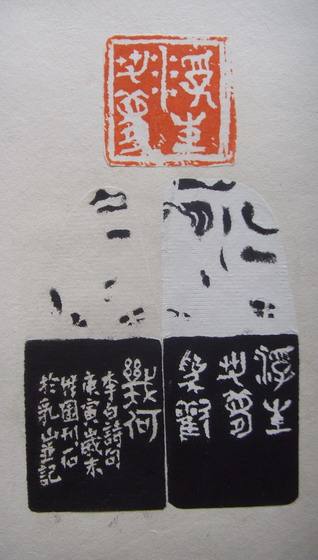 浮生
若夢
浮生
若夢
為歡
幾何
李白詩句
庚寅歲末
刊石
於乳山並記